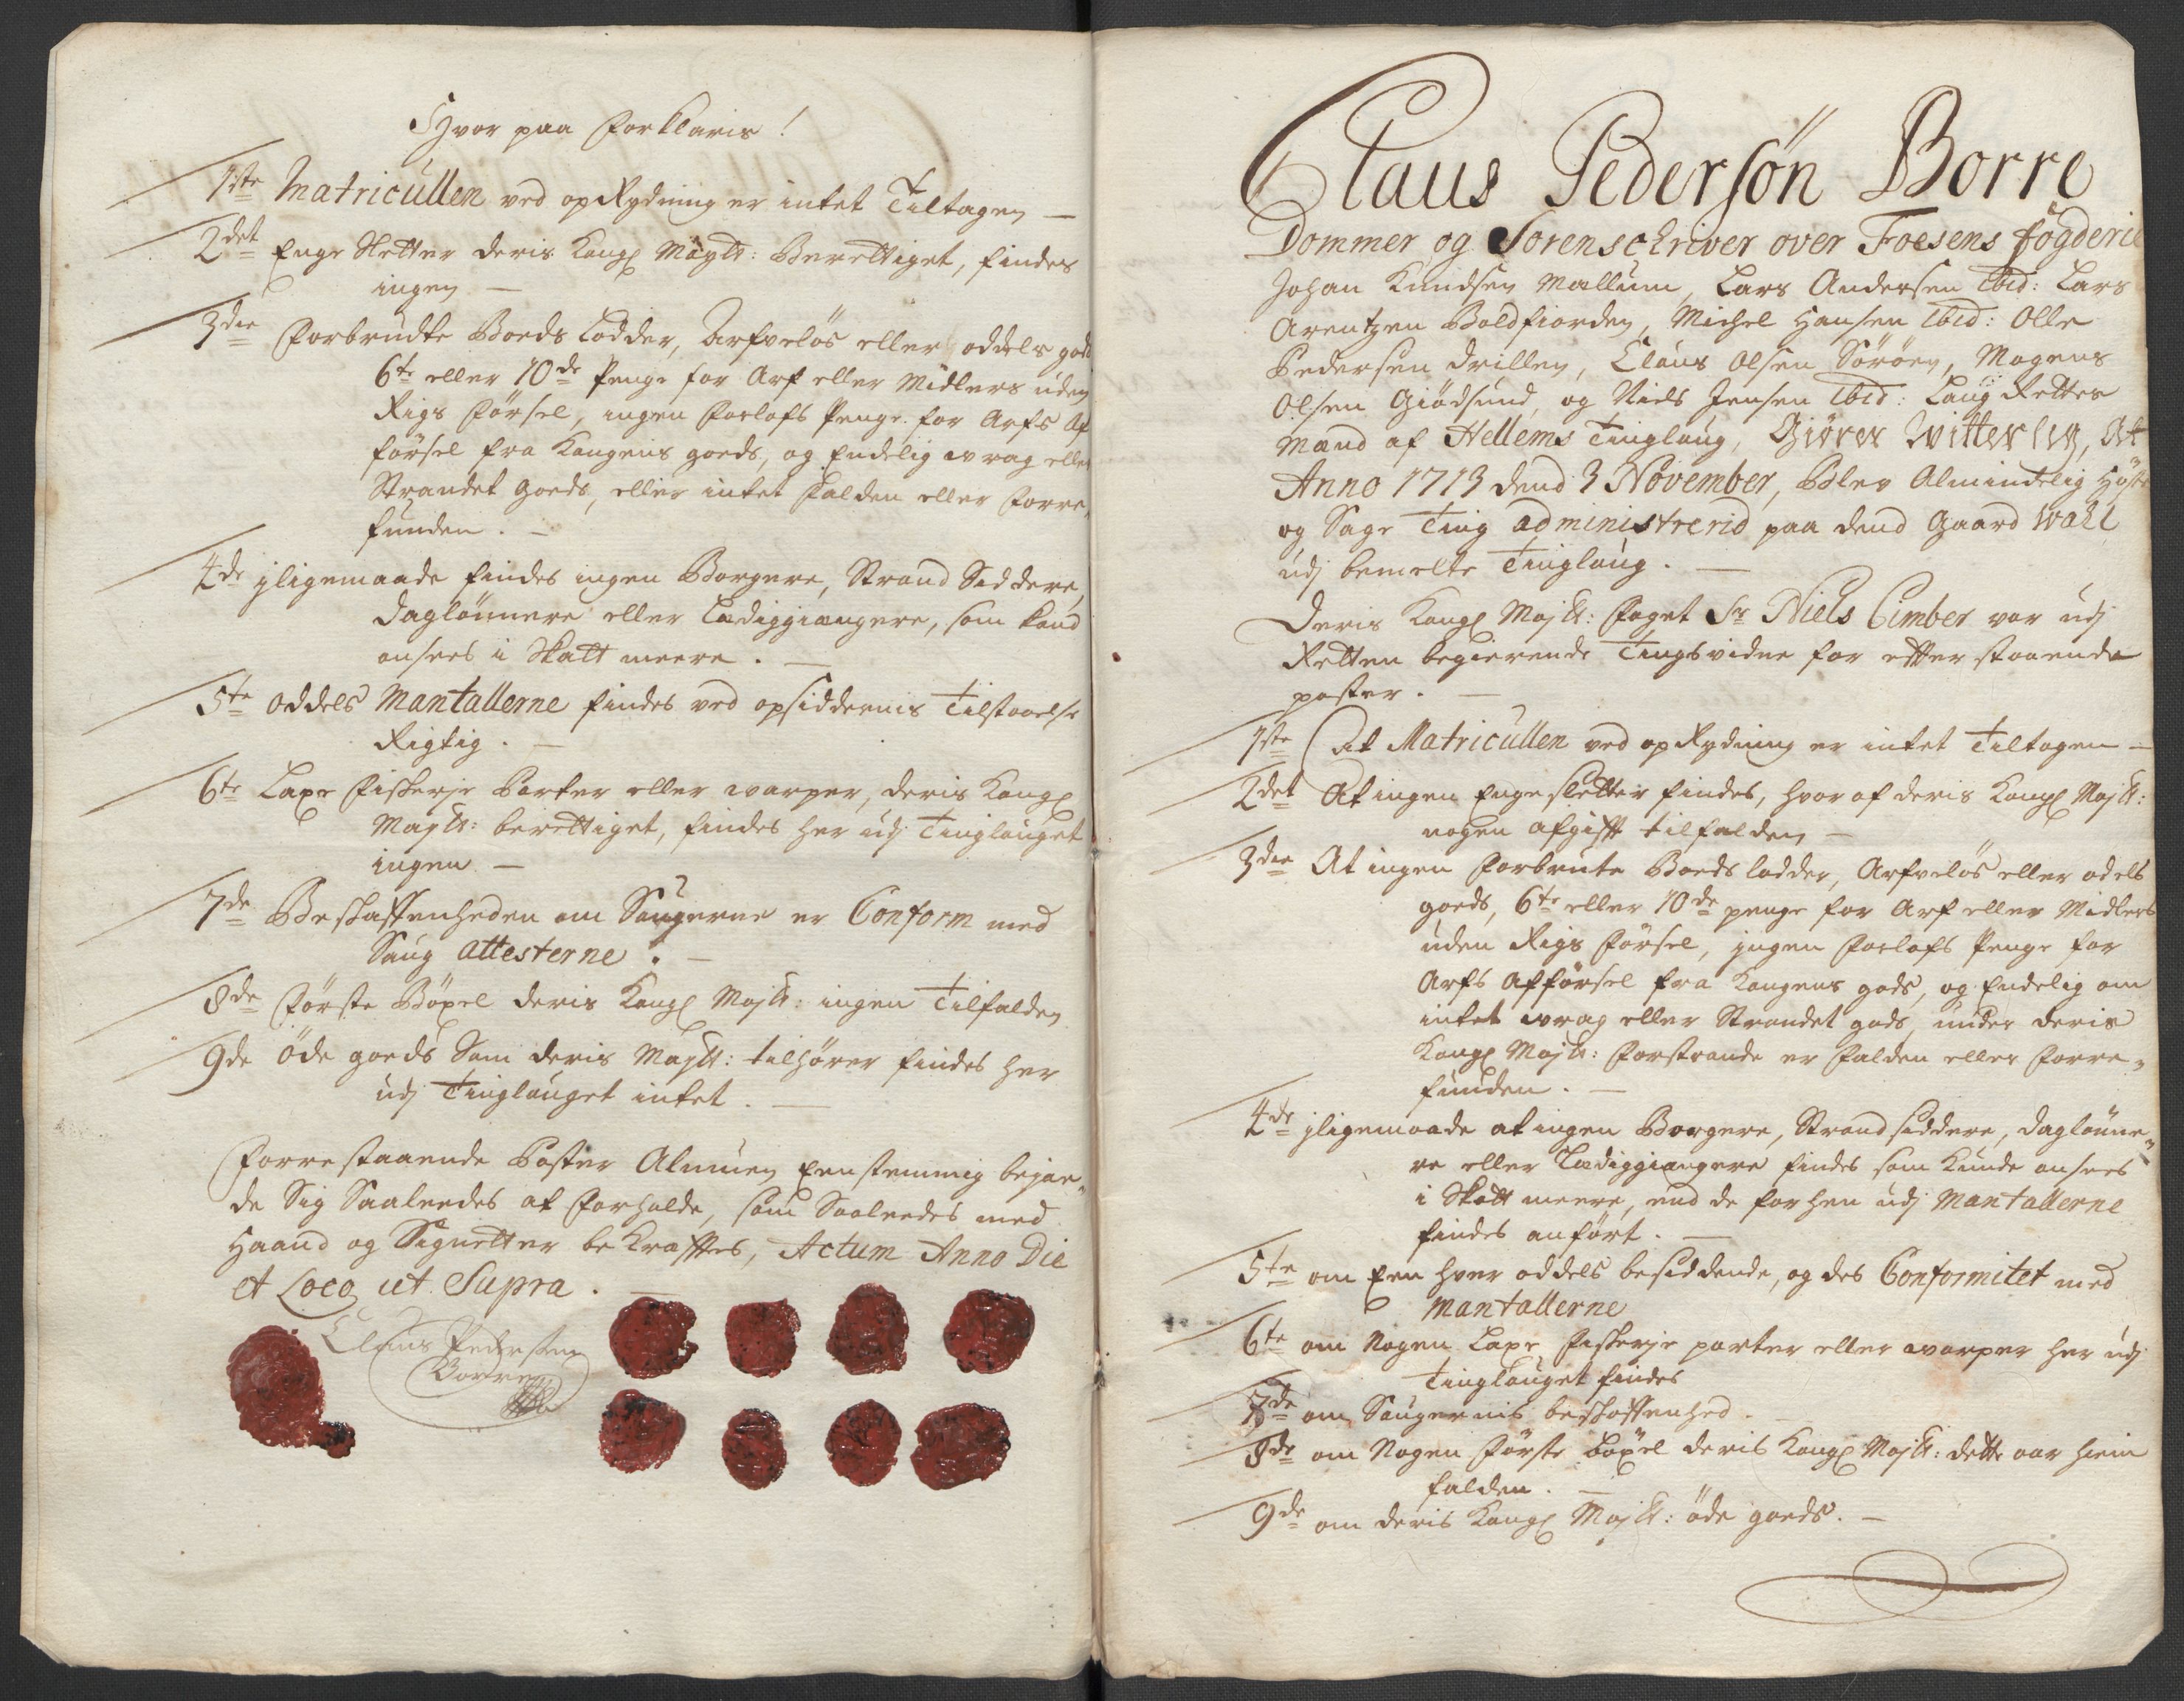 Hvor paa Forklaris !
1ste Matricullen ved opRydning er intet Tiltagen —
2det Enge Sletter deris Kongl Mayts: Berettiget, findes
ingen —
3die Forbrudte Boeds Lodder, Arfveløs eller oddels gods
6te eller 10de Penge for Arf eller Midlers uden
Rigs Førsel, ingen Forlofs Penge for Arfs Af
førsel fra Kongens goeds, og Endelig wrag eller
Strandet goeds, eller intet Falden eller Forre,,
funden . —
4de jligemaade findes ingen Borgere, Strand Siddere,
Daglønnere eller Lædiggiængere, som kand
ansees i Skatt meere . —
5te oddels Mantallerne findes ved opsiddernis Tilstaaelse
Rigtig . —
6te Laxe Fiskerje Parter eller warper, deris Kongl
Mayts: berettiget, findes her udj Tinglauget
ingen —
7de Beskaffenheden om Saugerne er Conform med
Saug Attesterne . —
8de Første Böxel deris Kongl Mayts: ingen Tilfalden
9de öde goeds Som deris Mayts: tilhører findes her
udj Tinglauget intet . —
Forrestaaende Poster Almuen Eenstemmig bejae,,
de Sig Saaledes at Forholde, som Saaledes med
Haand og Signetter bekræfftes, Actum Anno Die
et Loco ut Supra . —
Claus Pedersøn
Borre
Claus Pedersøn Borre
Dommer og Sorenschriver over Foesens fögderie
Johan Knudsen Mallum, Lars Andersen Ibid: Lars
Arentzen Boldfiorden, Michel Hansen Ibid: Olle
Pedersen Drillen, Claus Olsen Söröen, Mogens
Olsen Giödsund, og Niels Jensen Ibid: Laug Rettes
Mænd af Hellems Tinglaug, Giører Witterlig, At
Anno 1713 dend 3 November, Blev Almindelig Høste
og Sage Ting administrerid paa dend Gaard Wahl
udj bemelte Tinglaug . —
Deris Kongl Mayts: Foget Sr Niels Cimber var udj
Retten begierende Tingsvidne for efterstaaende
poster . —
1ste At Matricullen ved opRydning er intet Tiltagen —
2det At ingen Enge Sletter findes, hvor af deris Kongl Mayts:
nogen afgifft tilfalden —
3die At ingen Forbrute Boeds lodder, Arfveløs eller odels
goeds, 6te eller 10de penge for Arf eller Midlers
uden Rigs Førsel, jngen Forlofs Penge for
Arfs Afførsel fra Kongens gods, og Endelig om
intet wrag eller Strandet gods, under deris
Kongl Mayts: Forstrande er Falden eller Forre,,
funden . —
4de jligemaade at ingen Borgere, Strand siddere, daglønne,,
re eller Lædiggiængere findes som kunde ansees
i Skatt meere, end de forhen udj Mantallerne
findes anført . —
5te om Een hver oddels besiddende, og des Conformitet med
Mantallerne
6te om Nogen Laxe Fiskerje parter eller warper her udj
Tinglauget findes
7de om Saugernis beskaffenhed .
8de om Nogen Første böxel deris Kongl Mayts: dette aar hiem
falden . —
9de om deris Kongl Mayts: öde goeds . —